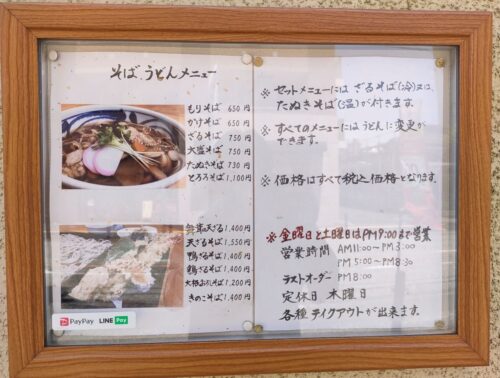 そば、うどんメニュー
もりそば 650円
かけそば 650円
ざるそば 750円
大盛そば 750円
たぬきそば 730円
とろろそば 1,100円
天ざる 1,400円
天ざるそば 1,550円
鴨ざるそば 1,400円
鶏ざるそば 1,400円
そば 1,200円
きのこそば 1,400円
PayPay LINE Pay
※ セットメニューには ざるそば(冷)又は、
たぬきそば(温)が付きます。
※ すべてのメニューにはうどんに変更が
できます。
※ 価格はすべて税込価格となります。
※ 金曜日と土曜日はPM9:00まで営業
営業時間 AM11:00~PM3:00
PM5:00~PM8:30
ラストオーダー PM8:00
定休日 木曜日
各種テイクアウトが出来ます。